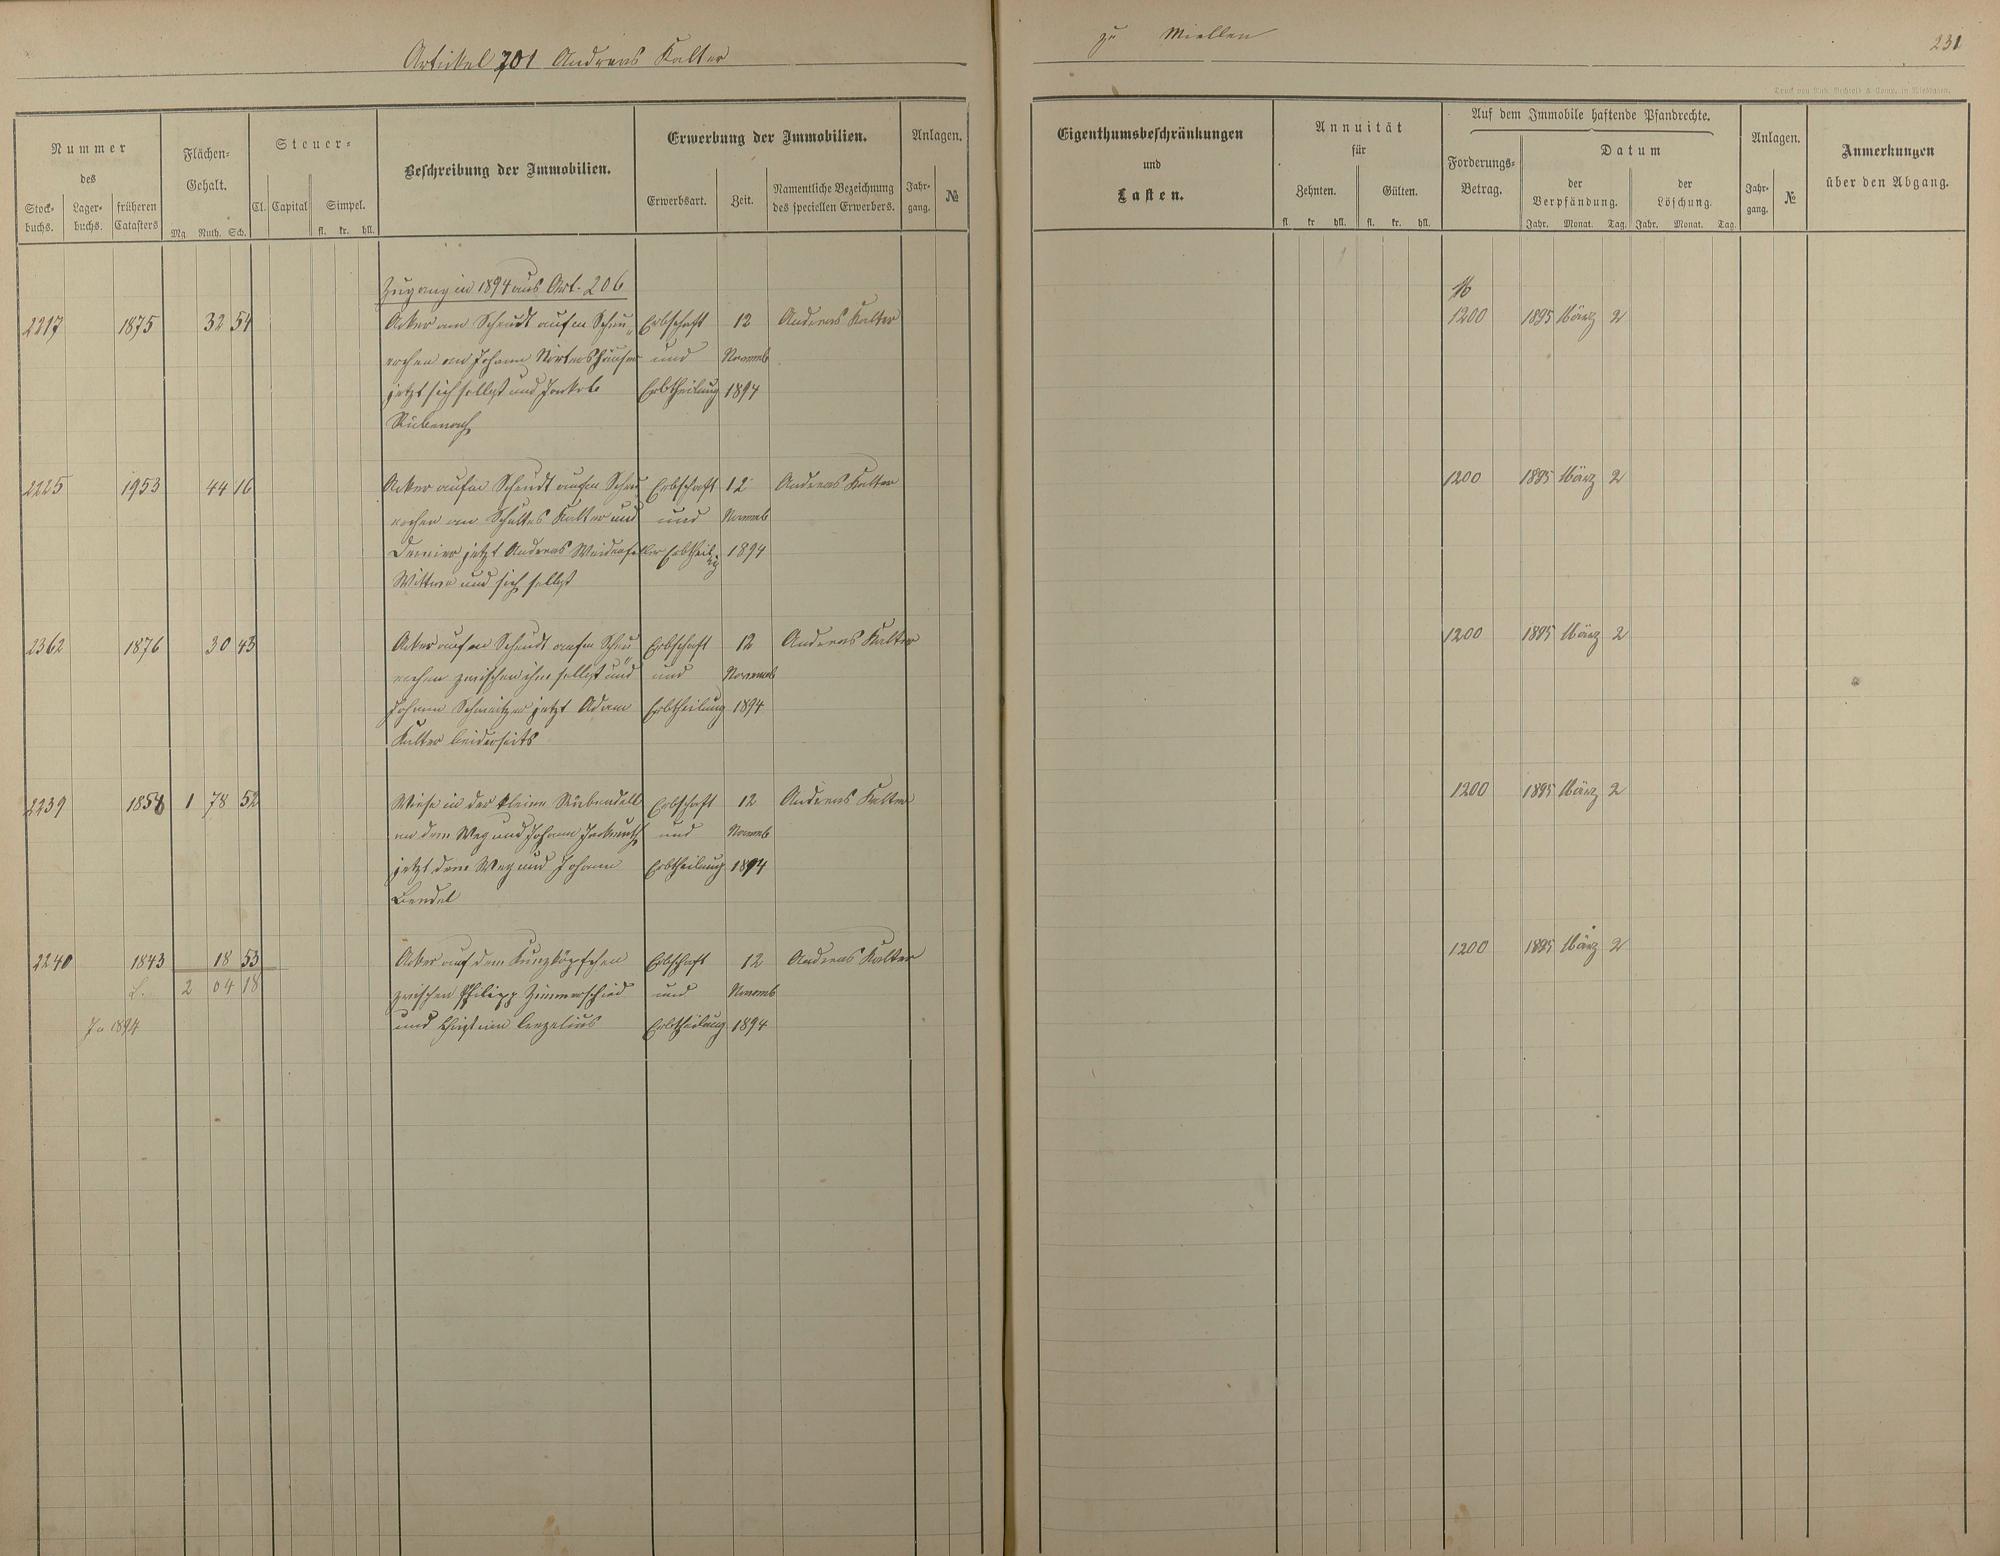 Artikel 201 Andreas Kalter
zu Miellen
231
Nummer
des
Stock-
buchs.
Lager-
buchs.
früheren
Catasters
Flächen-
Gehalt.
Mg. Ruth. Sch.
Steuer-
Cl. Capital Simpel.
fl. kr. hll.
Beschreibung der Immobilien.
Erwerbung der Immobilien.
Erwerbsart. Zeit.
Namentliche Bezeichnung
des speciellen Erwerbers.
Anlagen.
Jahr-
gang. №
Eigenthumsbeschränkungen
und
Lasten.
Annuität
für
Zehnten. Gülten.
fl. kr. hll. fl. kr. hll.
Auf dem Immobile haftende Pfandrechte.
Forderungs-
Betrag.
Datum
der
Verpfändung.
der
Löschung.
Jahr. Monat. Tag. Jahr. Monat. Tag.
Anlagen.
Jahr-
gang. №
Anmerkungen
über den Abgang.
Zugang in 1894 aus Art. 206
2217 1875 32 54 Acker am Scheudt aufm Scheu- Erbschaft 12 Andreas Kalter 1200 1895 März 2
an Johann und Novemb
jetzt sich selbst und Erbtheilung 1894
Rübenach
2225 1953 44 16 Acker aufm Scheudt aufm Scheu Erbschaft 12 Andreas Kalter 1200 1895 März 2
an Schultes Kalter und und Novemb
jetzt Andreas Weidenfeller Erbtheilg 1894
Wittwe und sich selbst
2362 1876 30 43 Acker aufm Scheudt aufm Scheu Erbschaft 12 Andreas Kalter 1200 1895 März 2
zwischen ihm selbst und und Novemb
Johann Schmitzer jetzt Adam Erbtheilung 1894
Kalter beiderseits
2239 1858 1 78 52 Wiese in der kleine Rübendell Erbschaft 12 Andreas Kalter 1200 1895 März 2
an dem Weg und Johann und Novemb
jetzt dem Weg und Johann Erbtheilung 1894
Bendel
2240 1843 18 53 Acker auf dem Kunzköpfchen Erbschaft 12 Andreas Kalter 1200 1895 März 2
2 04 18 zwischen Philipp Zimmerschied und Novemb
In 1894 und Christian Erbtheilung 1894